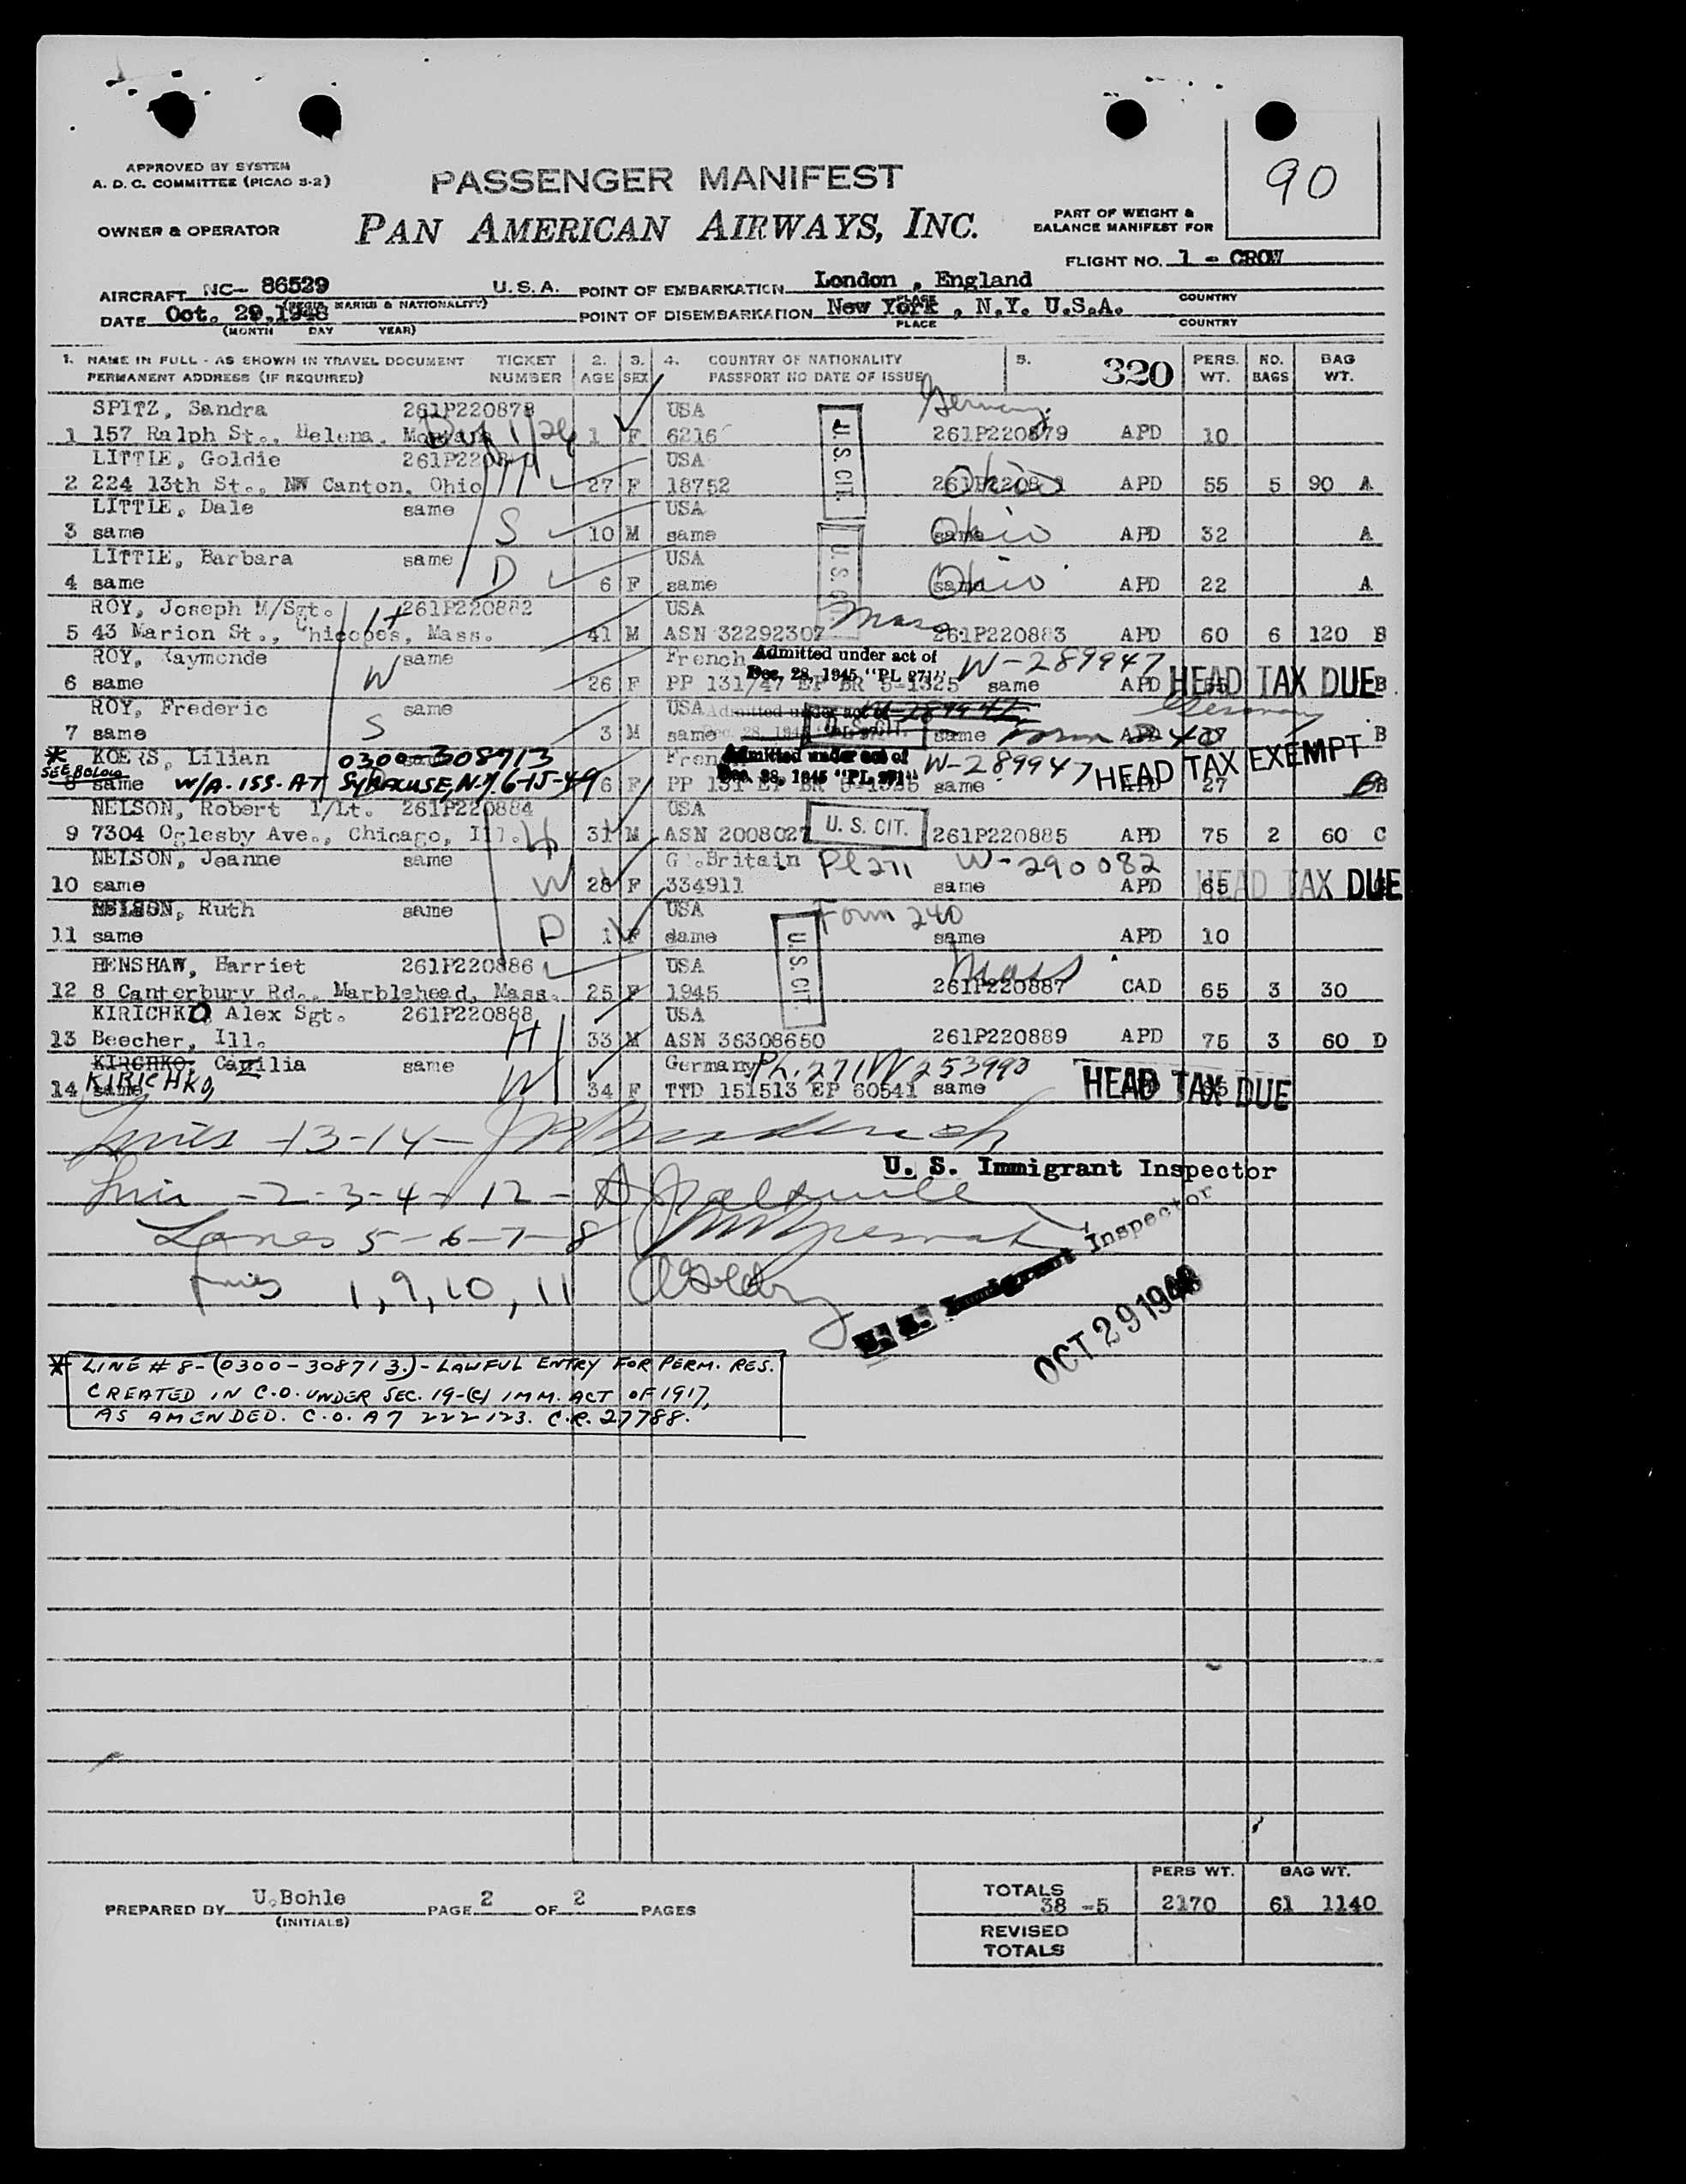 APPROVED BY SYSTEM
A. D. C. COMMITTEE (PICAO S-2)
PASSENGER MANIFEST
90
OWNER & OPERATOR
PAN AMERICAN AIRWAYS, INC.
PART OF WEIGHT &
BALANCE MANIFEST FOR
FLIGHT NO. 1 - CROW
AIRCRAFT NC- 86529 U.S.A. POINT OF EMBARKATION London , England
(REGIS. MARKS & NATIONALITY) PLACE COUNTRY
DATE Oct. 29,1948 POINT OF DISEMBARKATION New York , N.Y. U.S.A.
(MONTH DAY YEAR) PLACE COUNTRY
1. NAME IN FULL - AS SHOWN IN TRAVEL DOCUMENT TICKET 2. 3. 4. COUNTRY OF NATIONALITY 5. 320 PERS. NO. BAG
PERMANENT ADDRESS (IF REQUIRED) NUMBER AGE SEX PASSPORT NO DATE OF ISSUE WT. BAGS WT.
SPITZ, Sandra 261P220878 USA Germany
1 157 Ralph St., Helena, Montana 1 F 6216 U.S. CIT. 261P220879 APD 10
LITTLE, Goldie USA
2 224 13th St., NW Canton, Ohio 27 F 18752 Ohio APD 55 5 90 A
LITTLE, Dale same USA
3 same S 10 M same same Ohio APD 32 A
LITTLE, Barbara same USA U.S. CIT.
4 same D 6 F same same Ohio APD 22 A
ROY, Joseph M/Sgt. H 261P220882 USA Mass
5 43 Marion St., Chicopes, Mass. 41 M ASN 32292307 261P220883 APD 60 6 120 B
ROY, Raymonde same French Admitted under act of W-289947
6 same W 26 F PP 131/47 EP BR 5-1325 Dec. 28, 1945 "PL 271" same APD HEAD TAX DUE B
ROY, Frederic same USA Admitted under act of W-289947 Germany
7 same S 3 M same U.S. CIT. same Form 240 APD 17 B
* KOERS, Lilian 0300-308713 Admitted under act of W-289947 HEAD TAX EXEMPT
SEE BOLOW
8 same W/A. ISS. AT SYRACUSE, N.Y. 6-15-49 6 F Dec. 28, 1945 "PL 271" same 27 B
NELSON, Robert 1/Lt. 261P220884 USA
9 7304 Oglesby Ave., Chicago, Ill. H 31 M ASN 2008027 U. S. CIT. 261P220885 APD 75 2 60 C
NELSON, Jeanne same G .Britain Pl 271 W-290082
10 same W 28 F 334911 same APD 65 HEAD TAX DUE
NELSON, Ruth same USA Form 240
11 same D 1 F same U.S. CIT. same APD 10
HENSHAW, Harriet 261P220886 USA Mass
12 8 Canterbury Rd., Marblehead, Mass. 25 F 1945 261P220887 CAD 65 3 30
KIRICHKO Alex Sgt. 261P220888 USA
13 Beecher, Ill. H 33 M ASN 36308650 261P220889 APD 75 3 60 D
KIRCHKO, Cazilia same Germany PL. 271 W 253990
14 same KIRICHKO, W 34 F TTD 151513 EP 60541 same HEAD TAX DUE
Lines -13-14-
U. S. Immigrant Inspector
Lines -2-3-4-12-
Lanes 5-6-7-8
Lines 1,9,10,11
U. S. Immigrant Inspector
OCT 29 1948
* LINE # 8-(0300-308713.)- LAWFUL ENTRY FOR PERM. RES.
CREATED IN C.O. UNDER SEC. 19-(C) IMM. ACT OF 1917,
AS AMENDED. C.O. A7 222123. C.R. 27788.
PERS WT. BAG WT.
PREPARED BY U.Bohle PAGE 2 OF 2 PAGES TOTALS 38 -5 2170 61 1140
(INITIALS)
REVISED
TOTALS